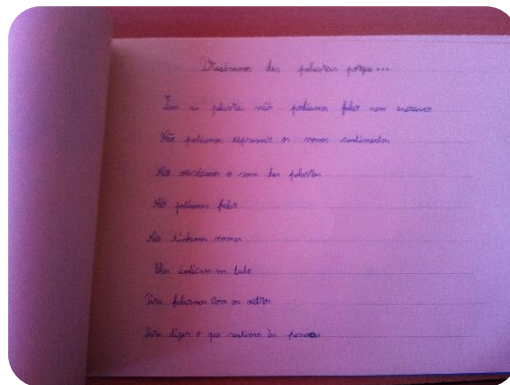 Precisamos das palavras porque...
Sem as palavras não podíamos falar nem escrever
Não podíamos expressar os nossos sentimentos
Não o nome das palavras
Não podíamos falar
Não tínhamos nomes
Elas em tudo
Para falarmos com os outros
Para dizer o que sentimos às pessoas